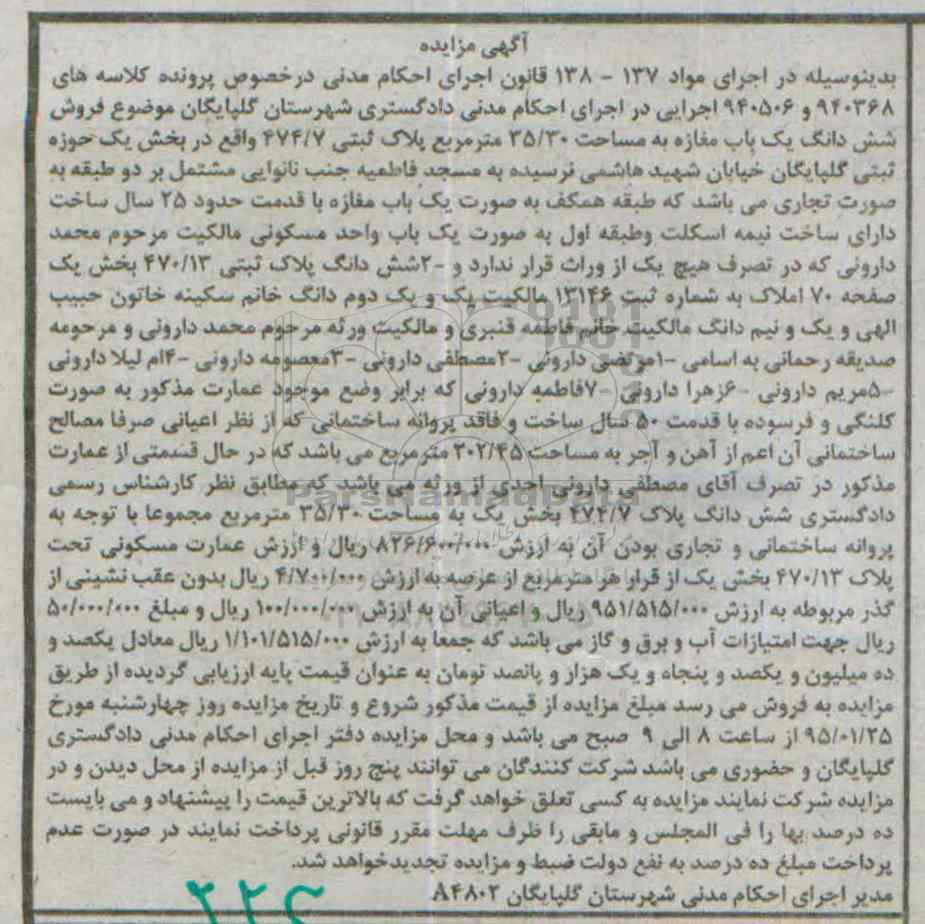 آگهی مزایده
بدینوسیله در اجرای مواد ۱۳۷ - ۱۳۸ قانون اجرای احکام مدنی درخصوص پرونده کلاسه های
۹۴۰۳۶۸ و ۹۴۰۵۰۶ اجرایی در اجرای احکام مدنی دادگستری شهرستان گلپایگان موضوع فروش
شش دانگ یک باب مغازه به مساحت ۳۵/۳۰ مترمربع پلاک ثبتی ۴۷۴/۷ واقع در بخش یک حوزه
ثبتی گلپایگان خیابان شهید هاشمی نرسیده به مسجد فاطمیه جنب نانوایی مشتمل بر دو طبقه به
صورت تجاری می باشد که طبقه همکف به صورت یک باب مغازه با قدمت حدود ۲۵ سال ساخت
دارای ساخت نیمه اسکلت وطبقه اول به صورت یک باب واحد مسکونی مالکیت مرحوم محمد
دارونی که در تصرف هیچ یک از وراث قرار ندارد و -۲شش دانگ پلاک ثبتی ۴۷۰/۱۳ بخش یک
صفحه ۷۰ املاک به شماره ثبت ۱۳۱۴۶ مالکیت یک و یک دوم دانگ خانم سکینه خاتون حبیب
الهی و یک و نیم دانگ مالکیت خانم فاطمه قنبری و مالکیت ورثه مرحوم محمد دارونی و مرحومه
صدیقه رحمانی به اسامی -۱مرتضی دارونی -۲مصطفی دارونی -۳معصومه دارونی -۴ام لیلا دارونی
-۵مریم دارونی -۶زهرا دارونی -۷فاطمه دارونی که برابر وضع موجود عمارت مذکور به صورت
کلنگی و فرسوده با قدمت ۵۰ سال ساخت و فاقد پروانه ساختمانی که از نظر اعیانی صرفا مصالح
ساختمانی آن اعم از آهن و آجر به مساحت ۲۰۲/۴۵ مترمربع می باشد که در حال قسمتی از عمارت
مذکور در تصرف آقای مصطفی دارونی احدی از ورثه می باشد که مطابق نظر کارشناس رسمی
دادگستری شش دانگ پلاک ۴۷۴/۷ بخش یک به مساحت ۳۵/۳۰ مترمربع مجموعا با توجه به
پروانه ساختمانی و تجاری بودن آن به ارزش ۸۲۶/۶۰۰/۰۰۰ ریال و ارزش عمارت مسکونی تحت
پلاک ۴۷۰/۱۳ بخش یک از قرار هر مترمربع از عرصه به ارزش ۴/۷۰۰/۰۰۰ ریال بدون عقب نشینی از
گذر مربوطه به ارزش ۹۵۱/۵۱۵/۰۰۰ ریال و اعیانی آن به ارزش ۱۰۰/۰۰۰/۰۰۰ ریال و مبلغ ۵۰/۰۰۰/۰۰۰
ریال جهت امتیازات آب و برق و گاز می باشد که جمعا به ارزش ۱/۱۰۱/۵۱۵/۰۰۰ ریال معادل یکصد و
ده میلیون و یکصد و پنجاه و یک هزار و پانصد تومان به عنوان قیمت پایه ارزیابی گردیده از طریق
مزایده به فروش می رسد مبلغ مزایده از قیمت مذکور شروع و تاریخ مزایده روز چهارشنبه مورخ
۹۵/۰۱/۲۵ از ساعت ۸ الی ۹ صبح می باشد و محل مزایده دفتر اجرای احکام مدنی دادگستری
گلپایگان و حضوری می باشد شرکت کنندگان می توانند پنج روز قبل از مزایده از محل دیدن و در
مزایده شرکت نمایند مزایده به کسی تعلق خواهد گرفت که بالاترین قیمت را پیشنهاد و می بایست
ده درصد بها را فی المجلس و مابقی را ظرف مهلت مقرر قانونی پرداخت نمایند در صورت عدم
پرداخت مبلغ ده درصد به نفع دولت ضبط و مزایده تجدیدخواهد شد.
مدیر اجرای احکام مدنی شهرستان گلپایگان A۴۸۰۲
ParsNamadData